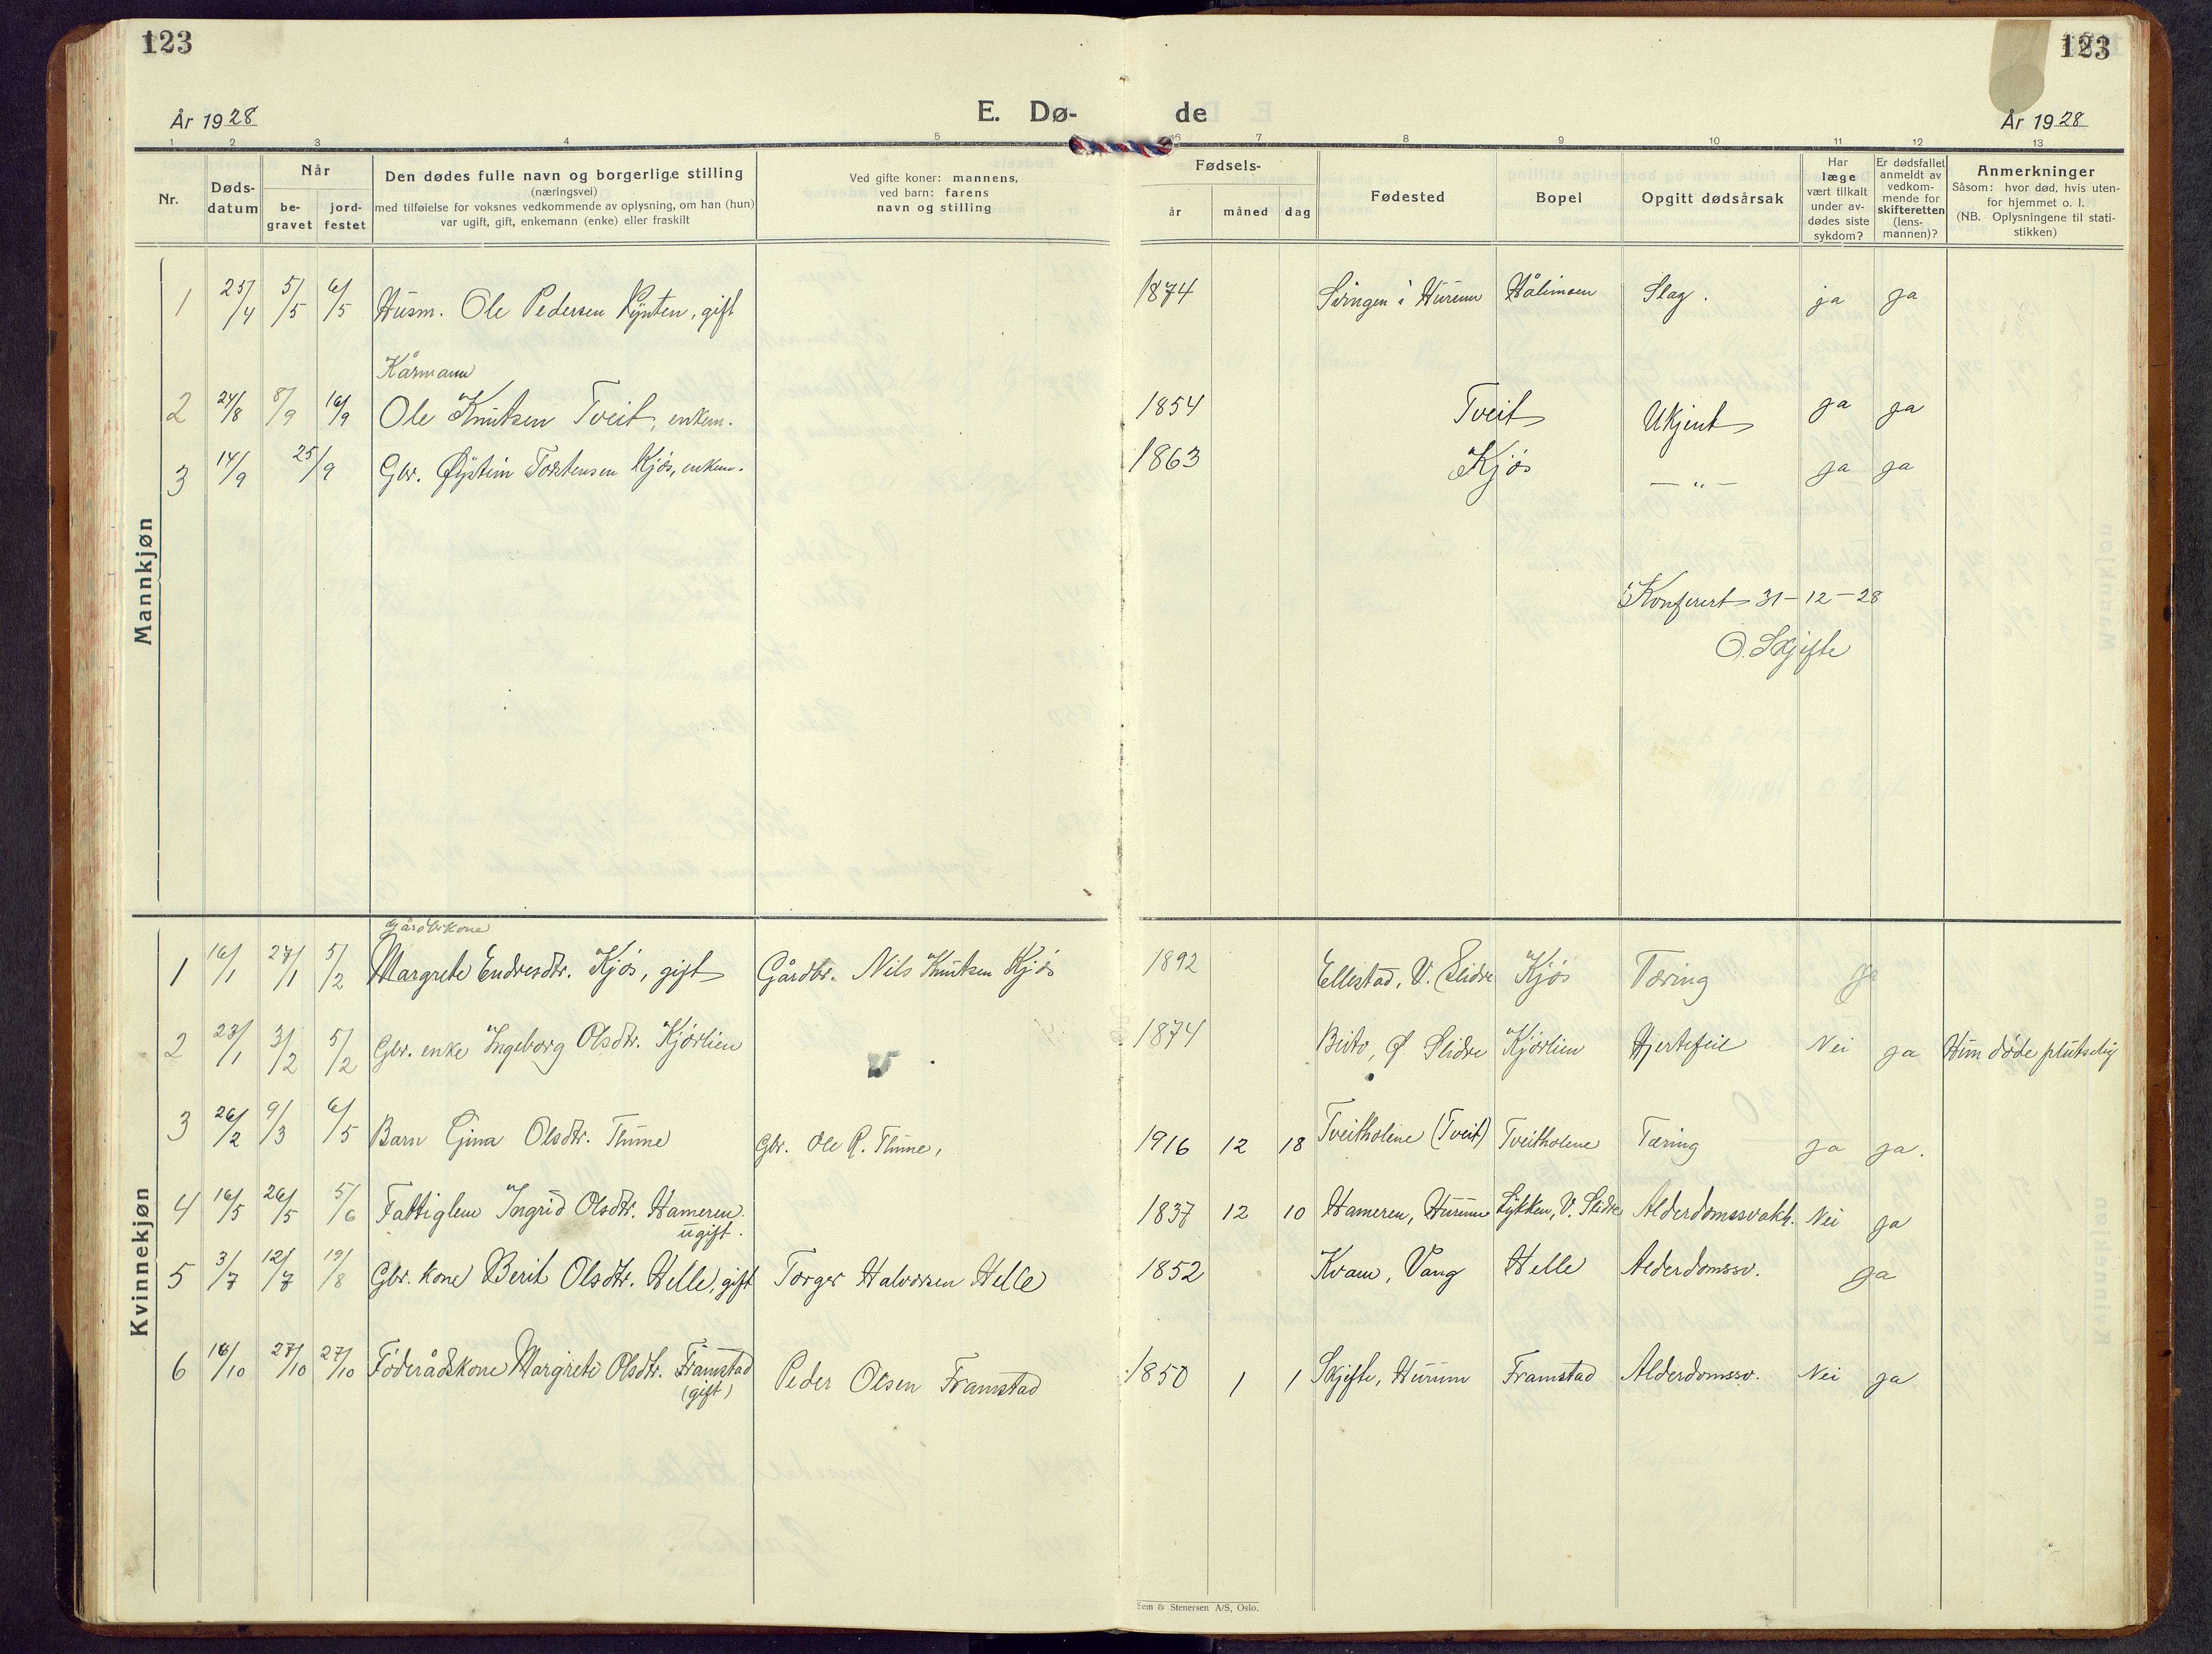 123
123
År 1928
E. Dø-
de
År 1928
1 2 3 4 5 6 7 8 9 10 11 12 13
Nr.
Døds-
datum
Når
be-
gravet
jord-
festet
Den dødes fulle navn og borgerlige stilling
(næringsvei)
med tilføielse for voksnes vedkommende av oplysning, om han (hun)
var ugift, gift, enkemann (enke) eller fraskilt
Ved gifte koner: mannens,
ved barn: farens
navn og stilling
Fødsels-
år måned dag
Fødested
Bopel
Opgitt dødsårsak
Har
læge
vært tilkalt
under av-
dødes siste
sykdom?
Er dødsfallet
anmeldt av
vedkom-
mende for
skifteretten
(lens-
mannen)?
Anmerkninger
Såsom: hvor død, hvis uten-
for hjemmet o. l.
(NB. Oplysningene til stati-
stikken)
Mannkjøn
1 25/4 5/5 6/5 Husm. Ole Pedersen Rynten, gift 1874 i Hurum Slag. ja ja
Kårmann
2 24/8 8/9 16/9 Ole Knutsen Tveit, enkem. 1854 Tveit Ukjent ja ja
3 14/9 25/9 Gbr. Øystein Torstensen Kjøs, enkem. 1863 Kjøs — " — ja ja
Konferert 31-12-28
O. Skjefte
Kvinnekjøn
Gårdbrkone
1 16/1 27/1 5/2 Margrete Endresdtr. Kjøs, gift Gårdbr. Nils Knutsen Kjøs 1892 Ellestad, V. Slidre Kjøs Tæring ja
2 23/1 3/2 5/2 Gbr. enke Ingeborg Olsdtr. Kjørlien 1874 Beito, Ø. Slidre Kjørlien Hjertefeil Nei ja Hun døde plutselig
3 26/2 9/3 6/5 Barn Gina Olsdtr. Thune Gbr. Ole R. Thune, 1916 12 18 Tveitholene (Tveit) Tveitholene Tæring ja ja.
4 16/5 26/5 5/6 Fattiglem Ingrid Olsdtr. Hameren 1837 12 10 Hameren, Hurum Lykken, V. Slidre Alderdomssvakh. Nei ja
ugift.
5 3/7 12/7 19/8 Gbr. kone Berit Olsdtr. Helle, gift Torger Halvorsen Helle 1852 Kvam, Vang Helle Alderdomssv. ja
6 18/10 27/10 27/10 Føderådskone Margrete Olsdtr. Framstad Peder Olsen Framstad 1850 1 1 Skjefte, Hurum Framstad Alderdomssv. Nei ja
(gift)
Sem & Stenersen A/S, Oslo.